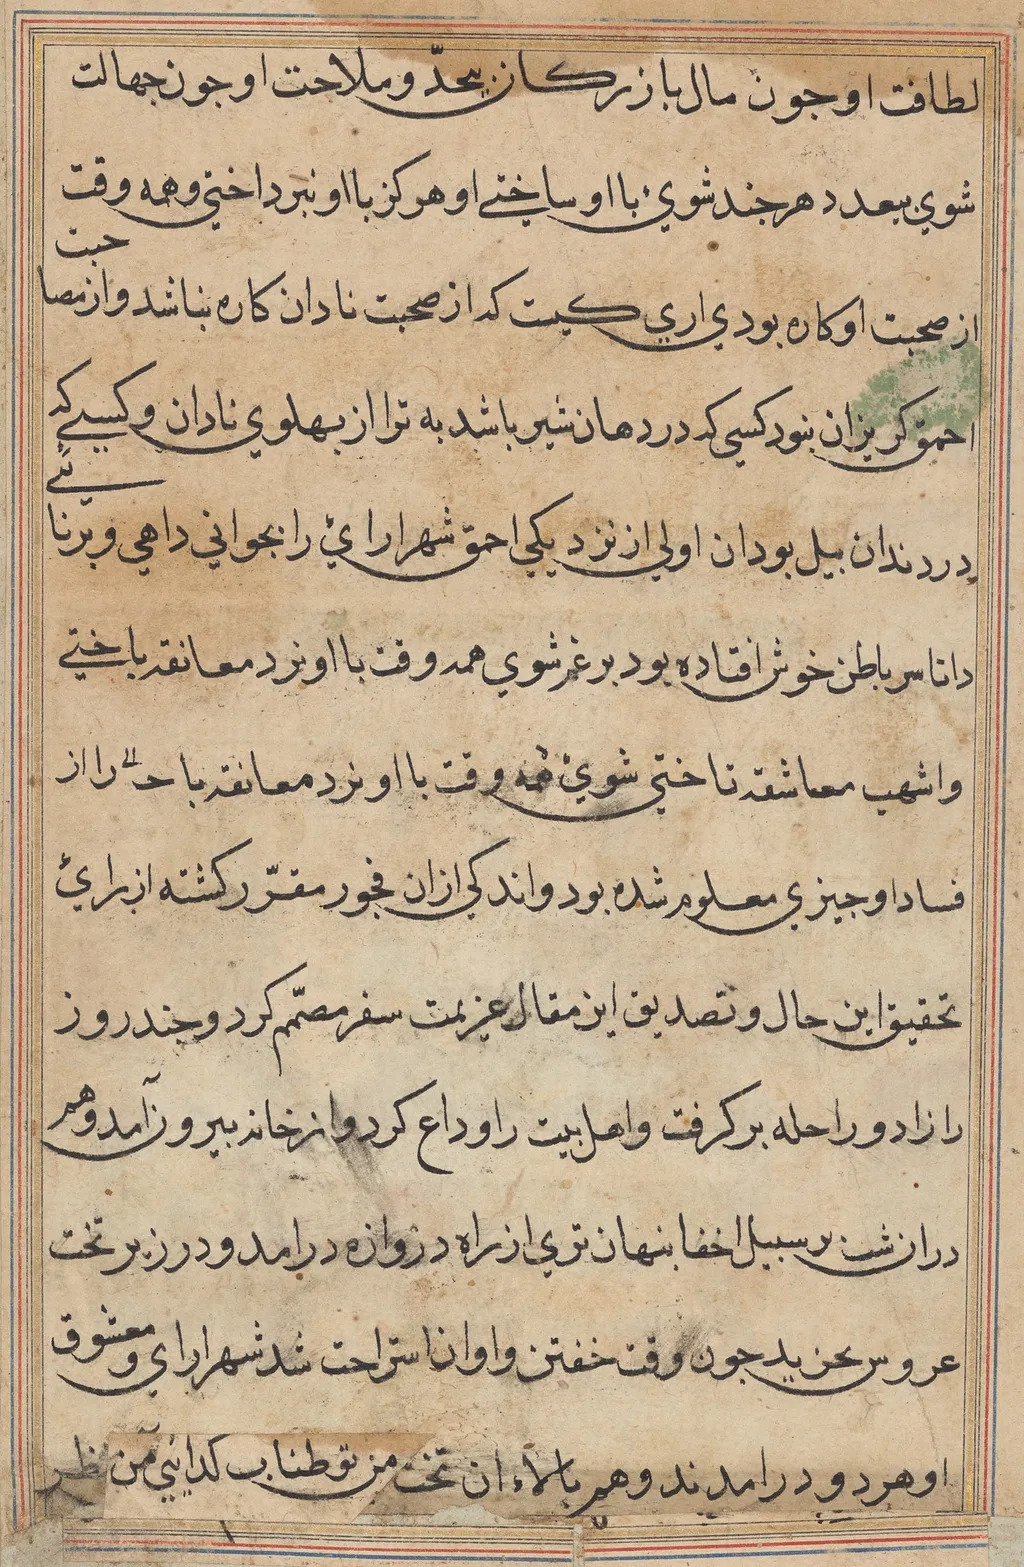 لطافت او جون مال بازرکان بیحدّ و ملاحت او جون جهالت
شوي بیعدد هر جند شوئ با او ساختی او هرکز با او نبرداختی و همه وقت
از صحبت او کاره بودي اري کیست که از صحبت نادان کاره نباشد و از مصا
حبت
احمق کریزان نبود کسی که در دهان شیر باشد به ترا از بهلوي نادان و کسی که
در دندان بیل بود ان اولی از نزدیکی احمق شهرارائ را بجوانی داهی و برنا
ئی
دانا سر باطن خوش افتاده بود بر غم شوي همه وقت با او نرد معانقه باختی
و اشهب معاشقه تاختی شوئ همه وقت با او نرد معانقه با حـ را از
فساد او جیزي معلوم شده بود و اندکی از ان فجور مقرّر کشته از برائ
تحقیق این حال و تصدیق این مقال عزیمت سفر مصمّم کرد و جند روز
را زاد و راحله بر کرفت و اهل بیت را وداع کرد و از خانه بیرون آمد و هم
در ان شب بر سبیل اخفا بنهان توي از راه دروازه درامد و در زیر تخت
عروس بخزید جون وقت خفتن و اوان استراحت شد شهراراي و معشوق
او هر دو درامدند و هم بالاء ان تخت من تو طناب کدائیی من